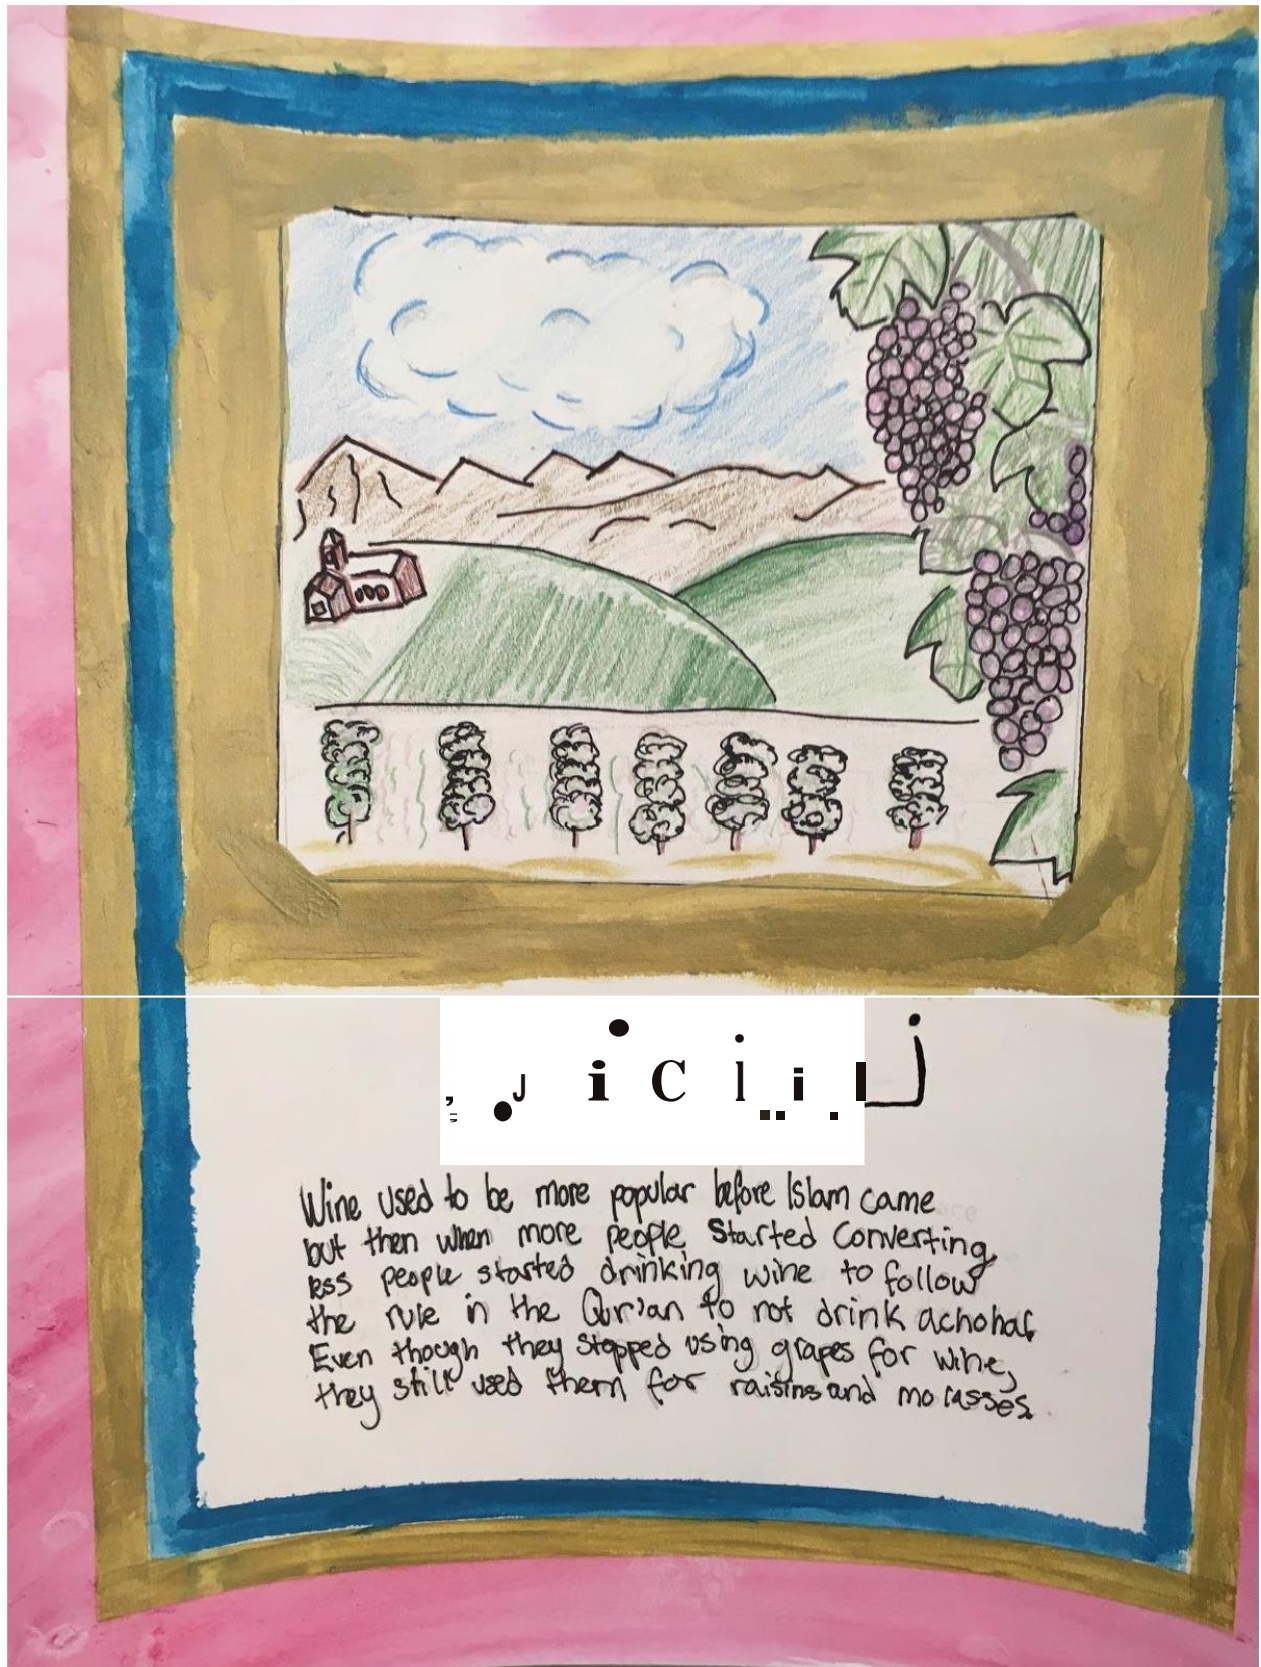 Wine used to be more popular before Islam came
but then when more people started converting
less people started drinking wine to follow
the rule in the Qur'an to not drink achohal.
Even though they stopped using grapes for wine,
they still used them for raisins and molasses.